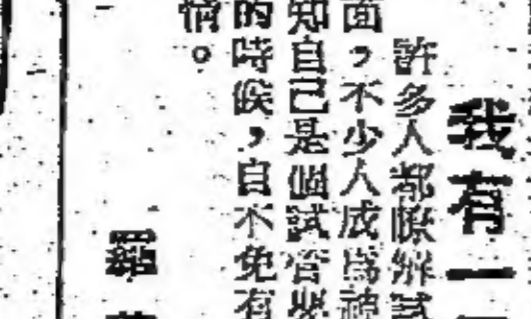 我有一
許多人都瞭解試
面，不少人成爲被
知自己是個試管嬰
的時候，自不免有
情。
羅